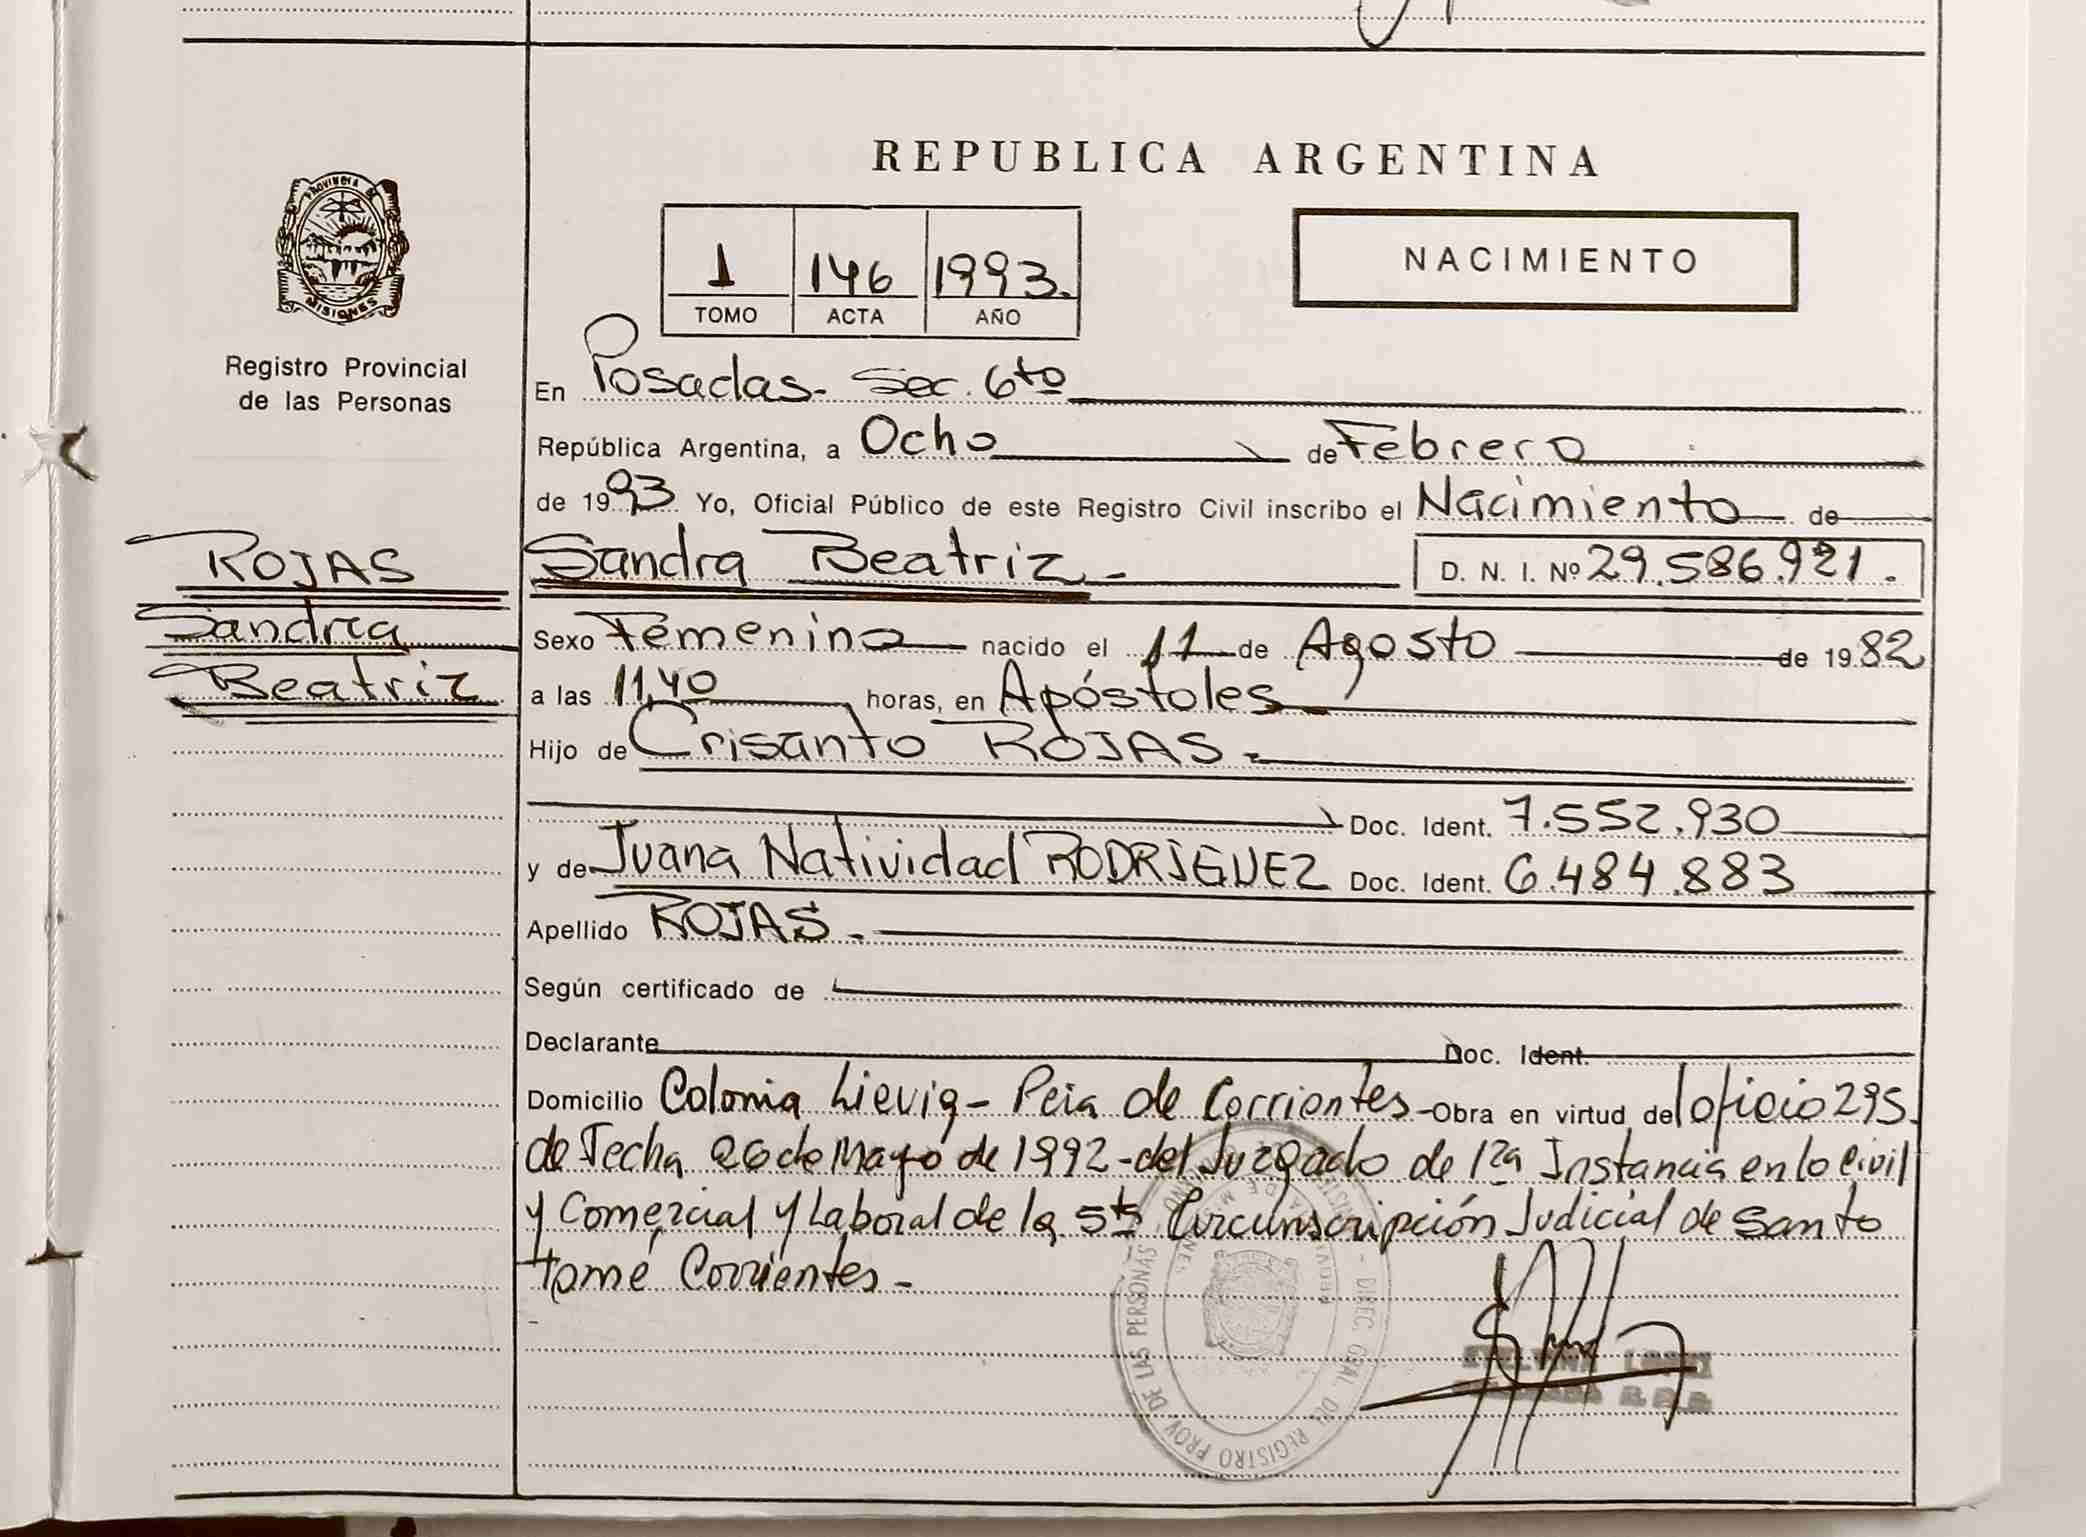 REPUBLICA ARGENTINA
PROVINCIA DE
MISIONES
Registro Provincial
de las Personas
1 146 1993.
TOMO ACTA AÑO
NACIMIENTO
En Posadas- Sec. 6to
República Argentina, a Ocho de Febrero
de 1993 Yo, Oficial Público de este Registro Civil inscribo el Nacimiento de
ROJAS
Sandra
Beatriz
Sandra Beatriz - D. N. I. Nº 29.586.921.
Sexo Femenino nacido el 11 de Agosto de 1982
a las 11,40 horas, en Apóstoles
Hijo de Crisanto ROJAS-
Doc. Ident. 7.552.930
y de Juana Natividad RODRIGUEZ Doc. Ident. 6.484.883
Apellido ROJAS.-
Según certificado de
Declarante Doc. Ident.
Domicilio Colonia Lievig- Pcia de Corrientes - Obra en virtud del oficio 295.
de Fecha 26 de Mayo de 1992-del Juzgado de 1ra Instancia en lo Civil
y Comercial y Laboral de la 5ta Circunscripción Judicial de Santo
tomé Corrientes-
DIREC. GRAL. DEL REGISTRO PROV DE LAS PERSONAS